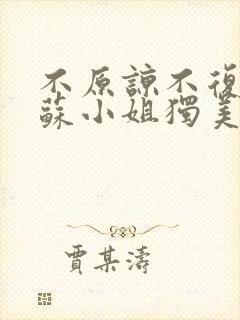 不原諒不復
蘇小姐獨美
賈某濤